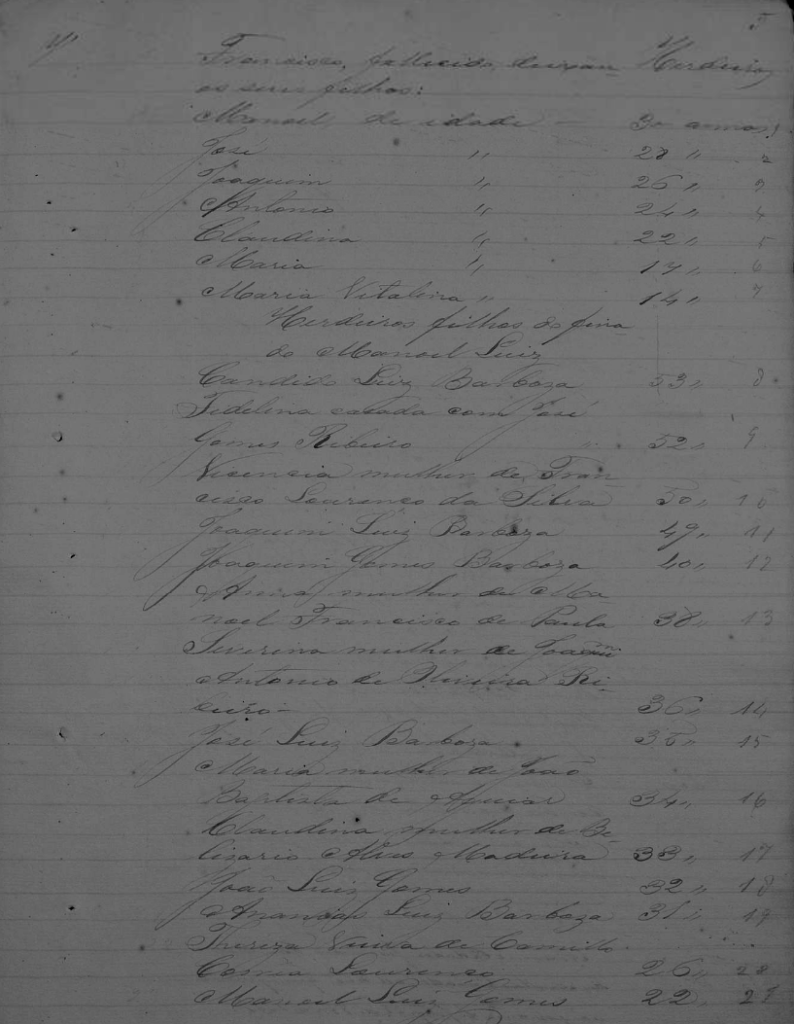 5
Francisco, fallecido, deixan- Herdeiros
os seus filhos:
Manoel, de idade — 30 annos 1
José " 28 " 2
Joaquim " 26 " 3
Antonio " 24 " 4
Claudina " 22 " 5
Maria " 17 " 6
Maria Vitalina " 14 " 7
Herdeiros filhos do fina
do Manoel Luiz
Candido Luiz Barboza 53 " 8
Fidelina casada com José
Gomes Ribeiro 52 " 9
Vicencia mulher de Fran
cisco Lourenço da Silva 50 " 10
Joaquim Luiz Barboza 49 " 11
Joaquim Gomes Barboza 40 " 12
Anna mulher de Ma
noel Francisco de Paula 38 " 13
Severina mulher de Joaquim
Antonio de Oliveira Ri-
beiro — 36 " 14
José Luiz Barboza 35 " 15
Maria mulher de João
Baptista de Aguiar 34 " 16
Claudina mulher de Be-
lizario Alves Madeira 33 " 17
João Luiz Gomes 32 " 18
Ananias Luiz Barboza 31 " 19
Thereza de
Correa Lourenço 26 " 20
Manoel Luiz Gomes 22 " 21